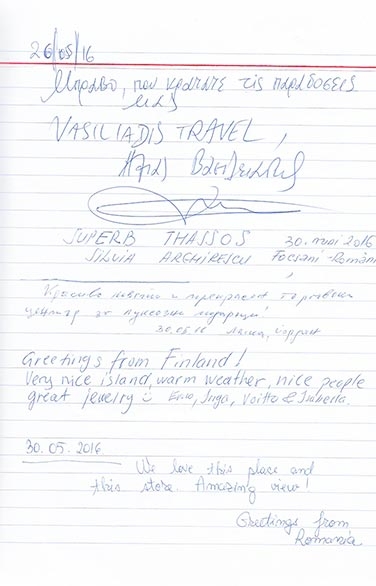 26/05/16
Μπράβο, που κρατάτε τις παραδόσεις
μας
VASILIADIS TRAVEL,
Ηλίας Βασιλειάδης
SUPERB THASSOS 30. mai 2016
SILVIA ARGHIRESCU Focsani-România
Красиво и
център за
30.05.16
Greetings from Finland!
Very nice island, warm weather, nice people
great jewelry Voitto & Isabella.
30.05.2016.
We love this place and
this store. Amazing view!
Greetings from
Romania